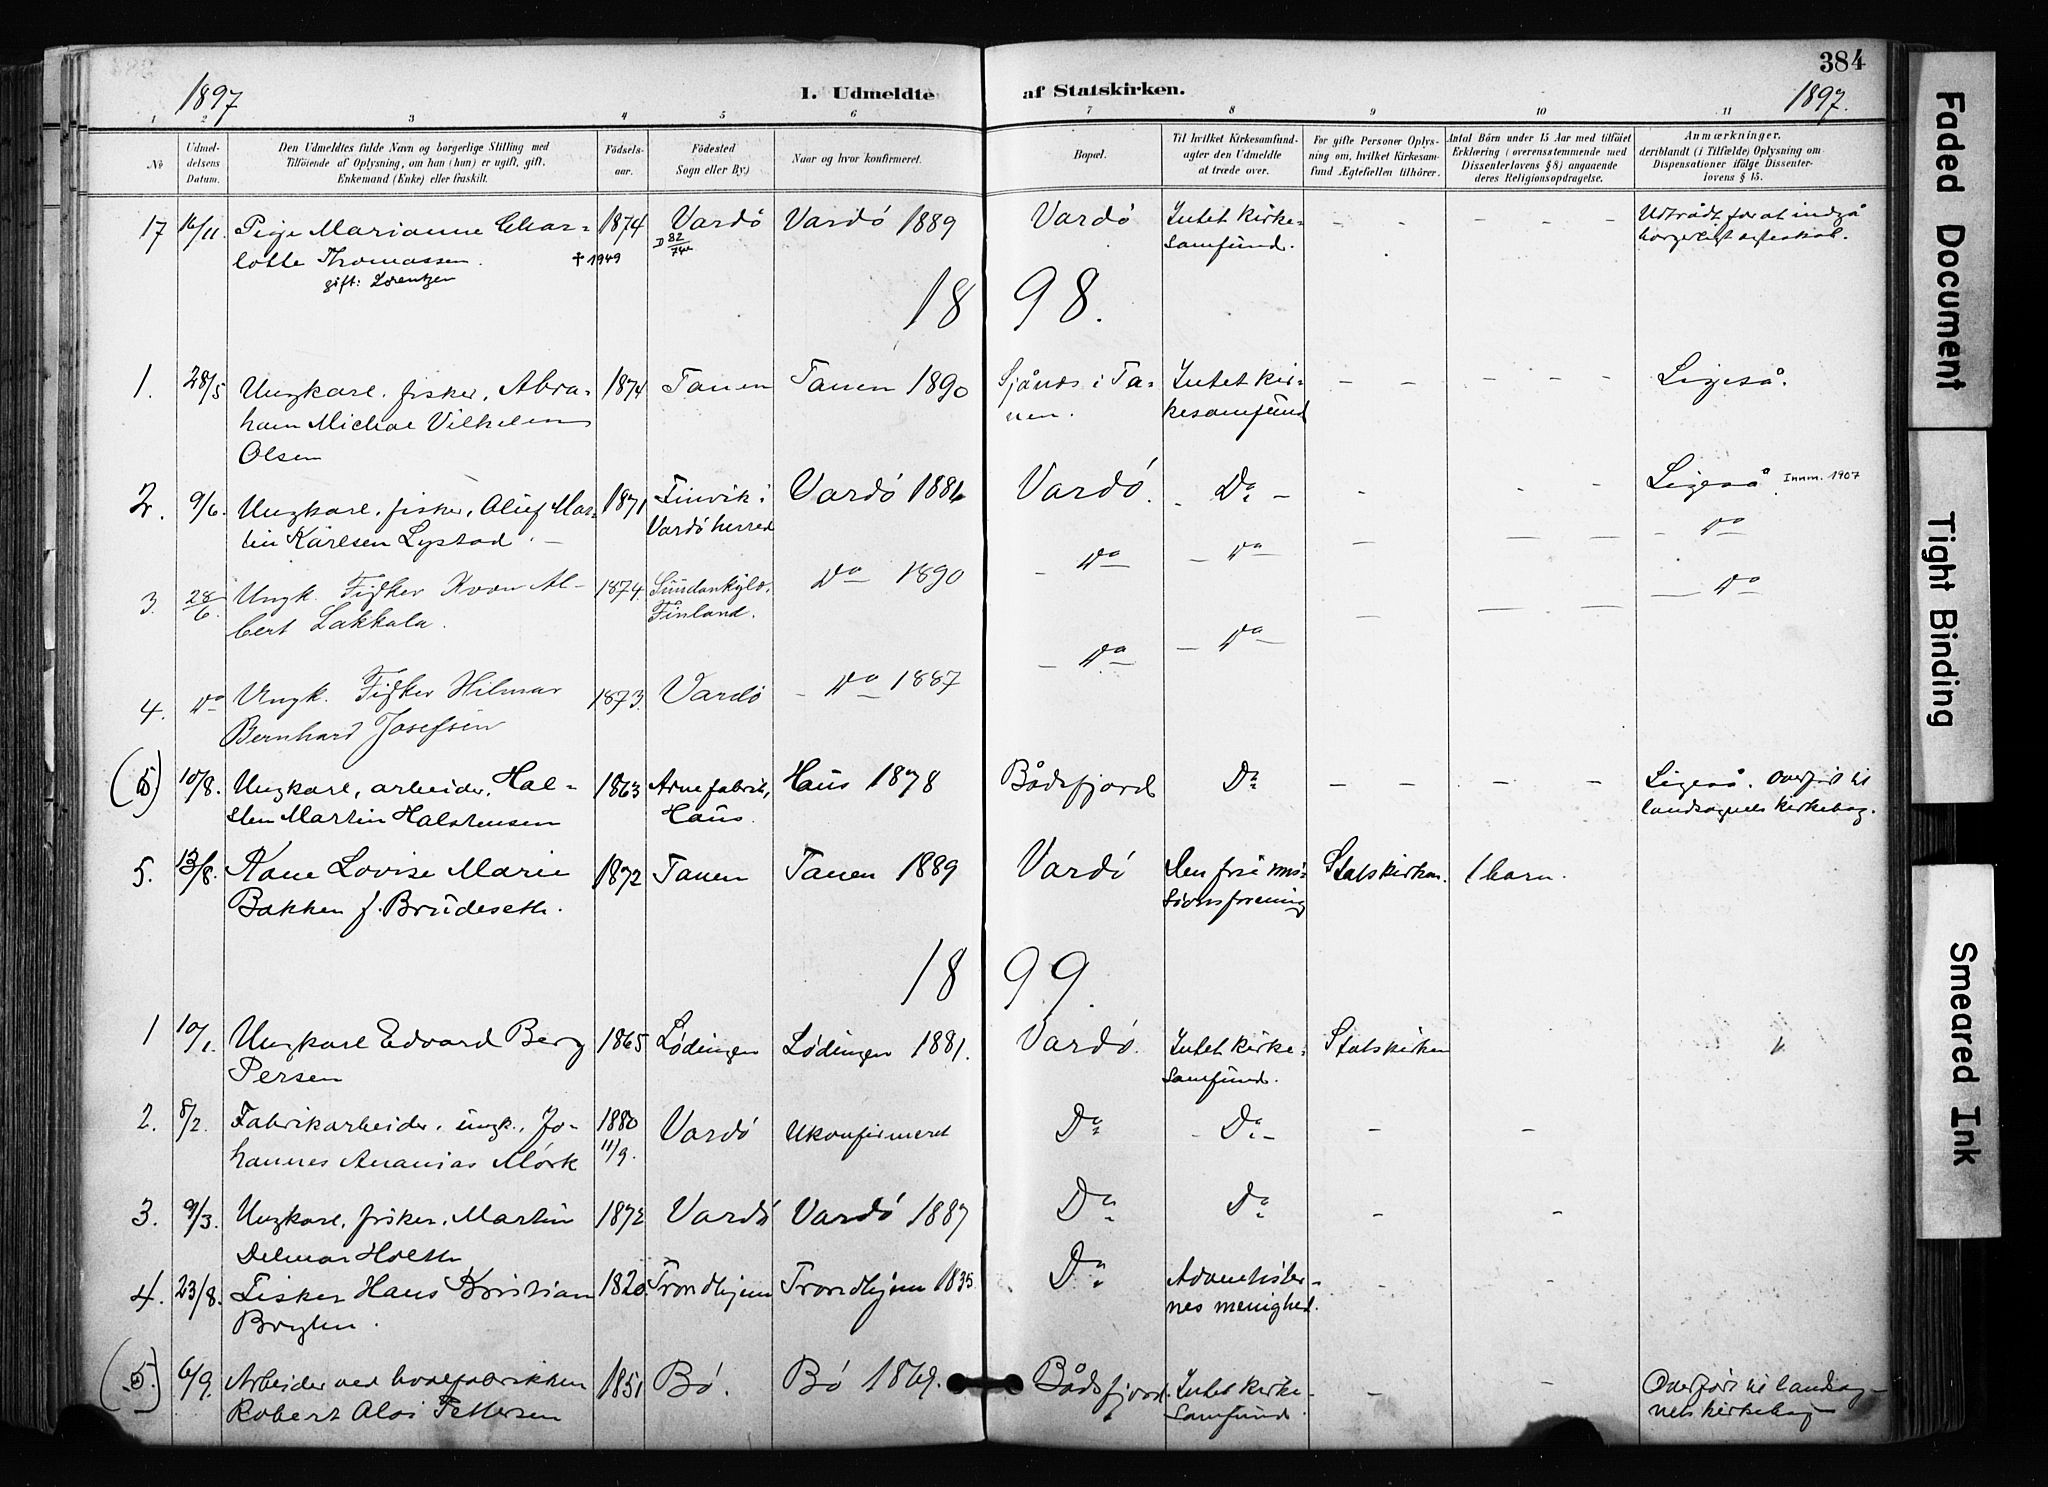 384
1897
I. Udmeldte af Statskirken.
1897.
1 2 3 4 5 6 7 8 9 10 11
No
Udmel-
delsens
Datum.
Den Udmeldtes fulde Navn og borgerlige Stilling med
Tilføiende af Oplysning, om han (hun) er ugift, gift,
Enkemand (Enke) eller fraskilt.
Fødsels-
aar.
Fødested
Sogn eller By.)
Naar og hvor konfirmeret.
Bopæl.
Til hvilket Kirkesamfund-
agter den Udmeldte
at træde over.
For gifte Personer Oplys-
ning om, hvilket Kirkesam-
fund Ægtefællen tilhører.
Antal Børn under 15 Aar med tilføiet
Erklæring (overensstemmende med
Dissenterlovens § 8) angaaende
deres Religionsopdragelse.
Anmærkninger.
deriblandt (i Tilfælde) Oplysning om
Dispensationer ifølge Dissenter-
lovens § 15.
17 16/11. Pige Marianne Char- 1874 Vardö Vardö 1889 Vardö Intet kirke- – – – – Udtrådt for at indgå
lotte Thomassen. † 1949 D 82/74 samfund. borgerligt ægteskab.
gift: Lorentzen
1898.
1. 28/5 Ungkarl, fisker, Abra- 1874 Tanen Tanen 1890 Sjånes i Ta- Intet kir- – – – – – Ligeså.
ham Vilhelm nen. kesamfund
Olsen
2. 9/6. Ungkarl, fisker, Oluf Mar- 1871 Finvik i Vardö 1886 Vardö. – Do – Ligeså. Innm. 1907
tin Karlsen Lystad. – Vardö herred
3. 28/6 Ungk. Fisker Albert 1874. Do 1890 – Do – – Do – – – – – Do
Lakkala. Finland.
4. Do Ungk. Fisker Hilmar 1873. Vardö – Do 1887 – Do – – Do – – – – – Do
Bernhard Josefsen
(5) 10/8. Ungkarl, arbeider, Hal- 1863 Arnefabrik, Haus 1878 Bådsfjord Do – – – – Ligeså. Overført til
sten Martin Halstensen Haus. landsognets kirkebog.
5. 13/8. Kone Lovise Marie 1872 Tanen Tanen 1889 Vardö Den frie mis- Statskirken. 1 barn.
Bakken f. Brudeseth. sionsforening
1899.
1 10/1. Ungkarl Edvard Berg 1865 Lödingen Lödingen 1881. Vardö. Intet kirke- Statskirken
Persen samfund.
2. 8/2. Fabrikarbeider, ungk., Jo- 1880 Vardö Ukonfirmeret Do – Do – – –
hannes Ananias Mörk 11/9.
3. 9/3. Ungkarl, fisker, Martin 1872 Vardö Vardö 1887 Do Do – –
Delmar Holth
4. 23/8. Fisker Hans Kristian 1820. Trondhjem Trondhjem 1835 Do Adventister- – –
nes menighed.
(5.) 6/9. Arbeider ved hvalfabrikken 1851 Bö. Bö 1869. Bådsfjord. Intet kirke- – – Overført til landsog-
Robert Pettersen samfund. nets kirkebog
Faded Document
Tight Binding
Smeared Ink